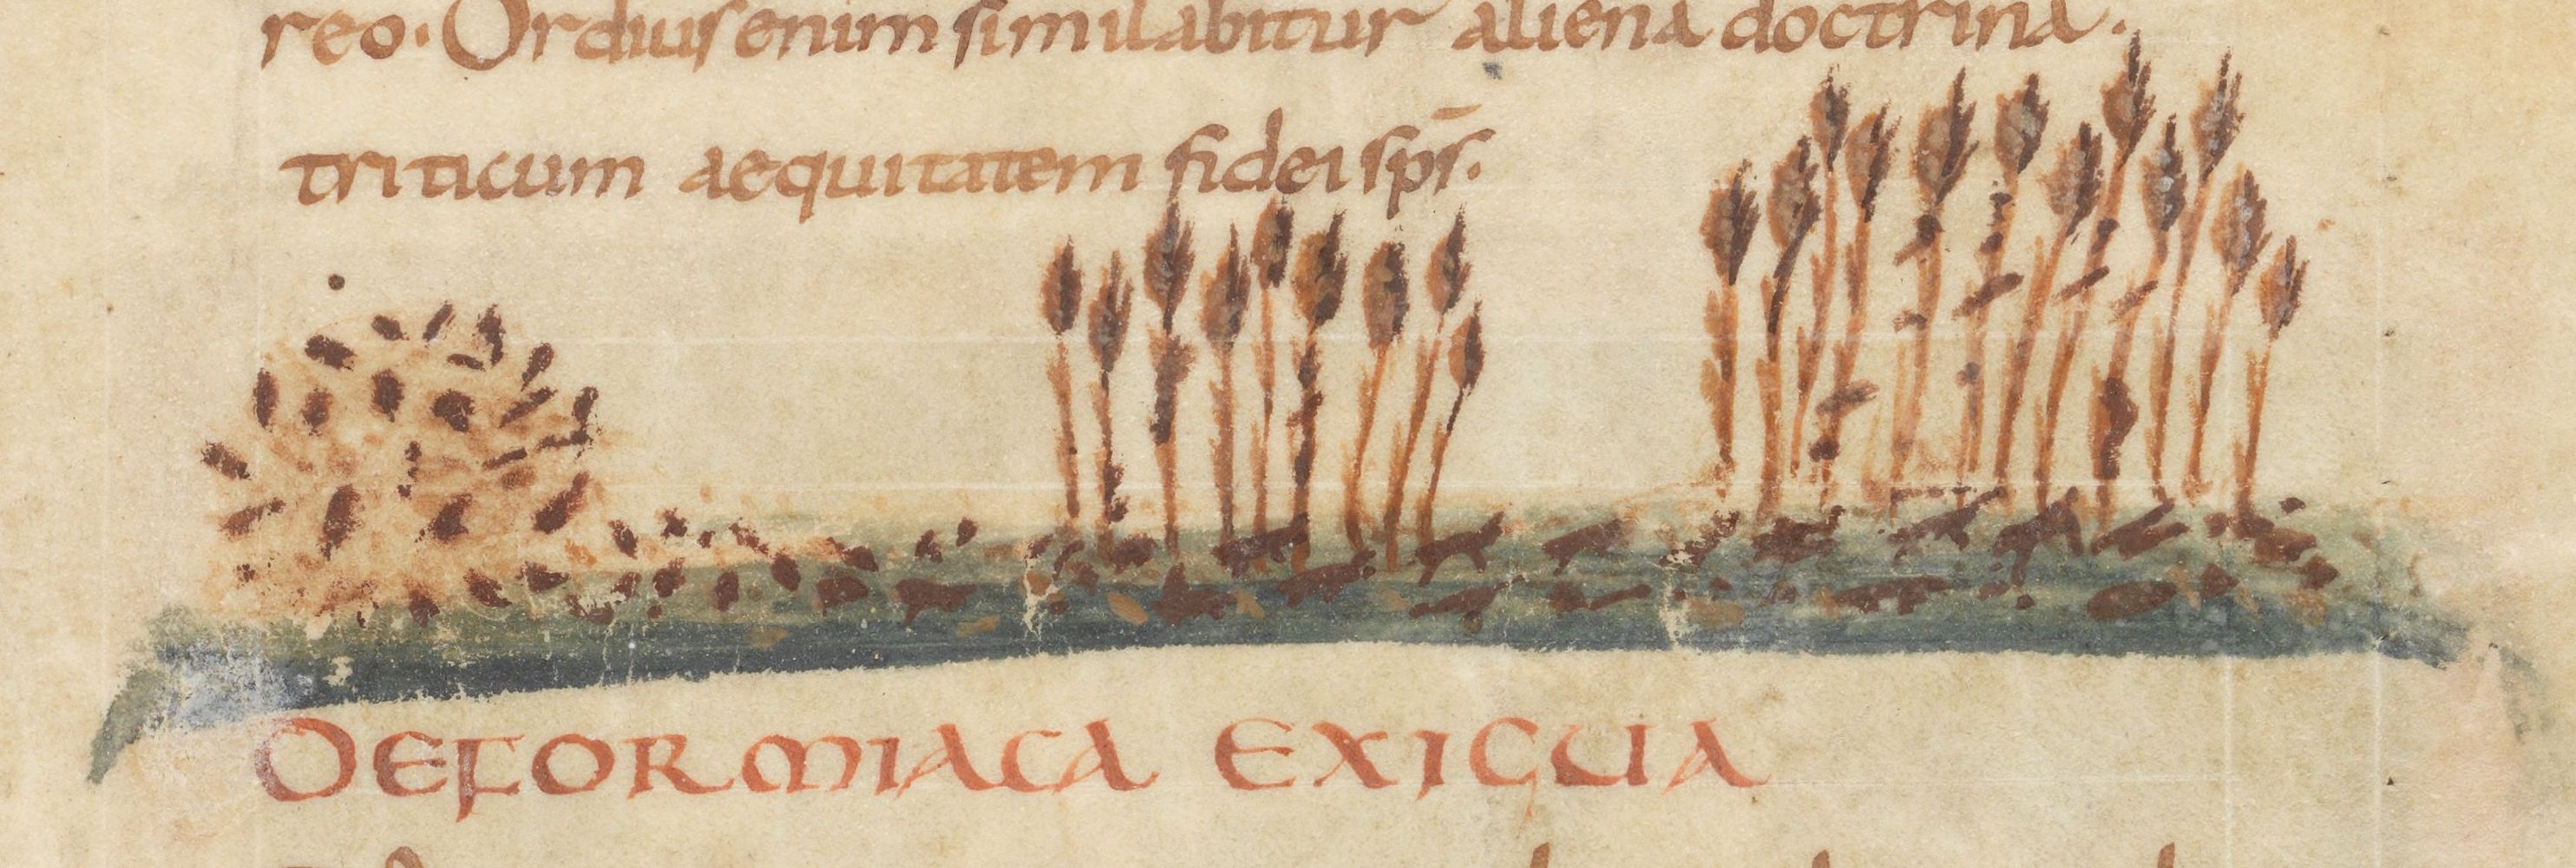 reo. Ordius enim similabitur aliena doctrina.
triticum aequitatem fidei sps̄.
DE FORMICA EXIGUA